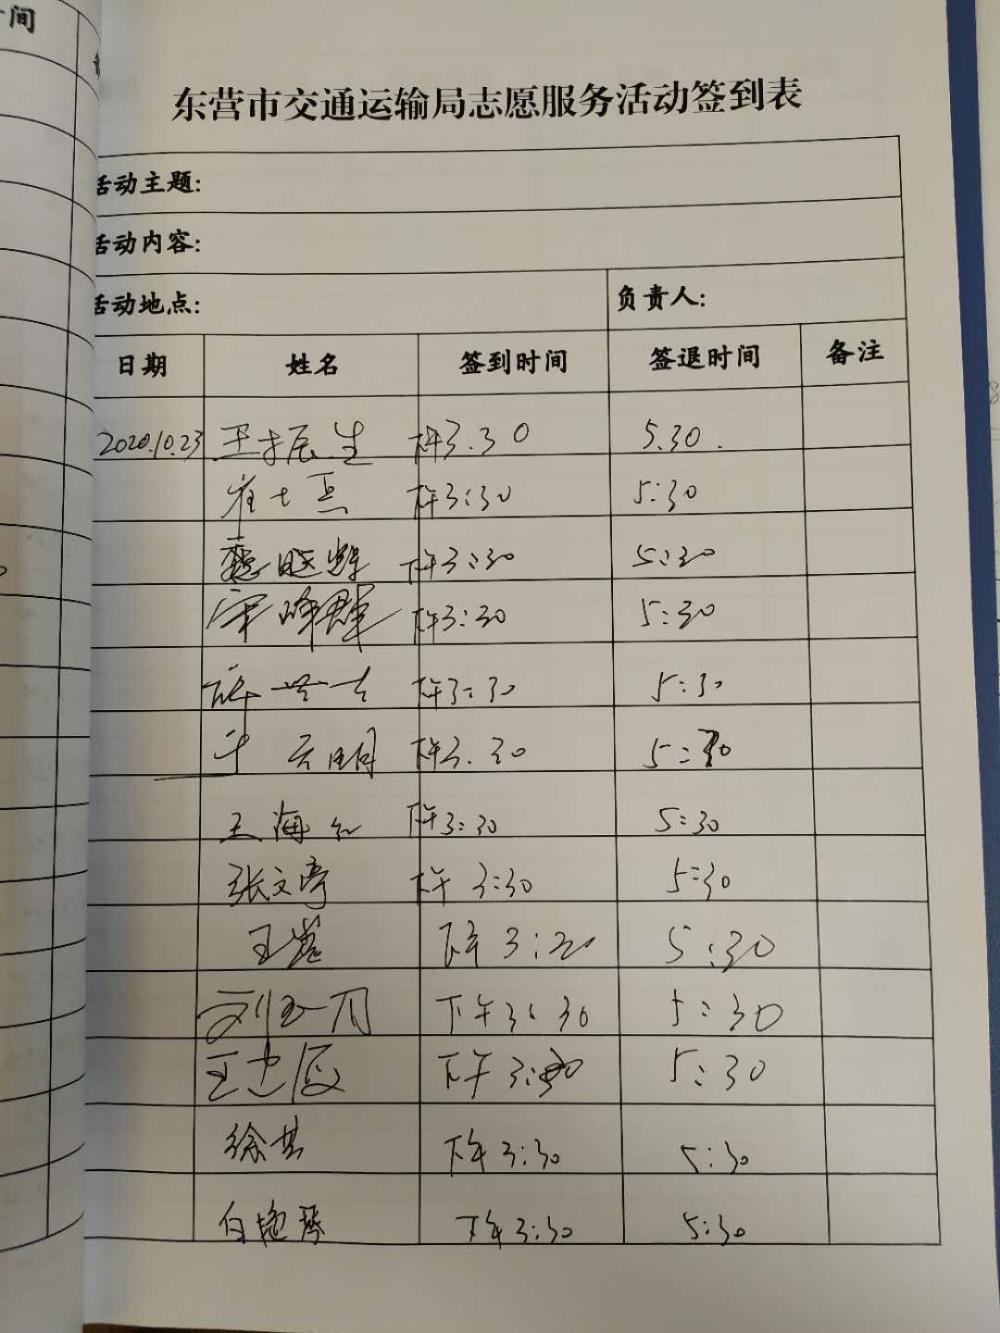 间
东营市交通运输局志愿服务活动签到表
活动主题:
活动内容:
活动地点: 负责人:
日期 姓名 签到时间 签退时间 备注
2020.10.23 王振生 下午3.30 5.30.
下午3:30 5:30
下午3:30 5:30
宋峰群 下午3:30 5:30
许世吉 下午3:30 5:30
下午3.30 5:30
王海红 下午3:30 5:30
张文亭 下午 3:30 5:30
下午 3:30 5:30
下午3:30 5:30
王忠臣 下午 3:30 5:30
徐甚 下午3:30 5:30
白艳琴 下午3:30 5:30